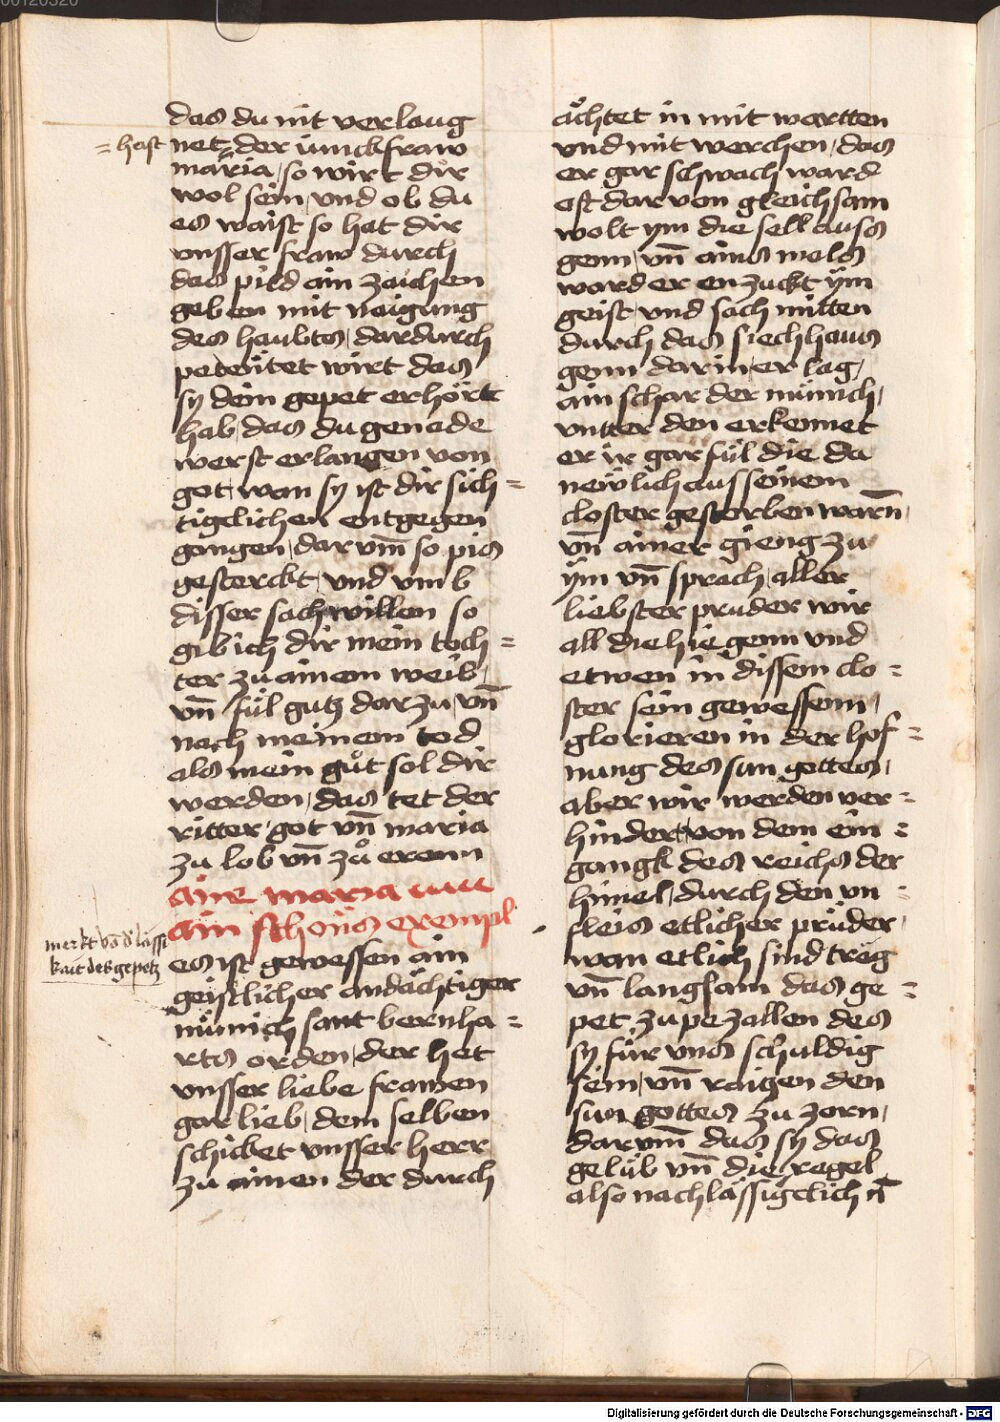 00120320
das du nit verlaug
= hast
net, der iunckfraw
maria, so wirt dir
wol sein, vnd ob du
es waist so hat dir
vnsser fraw durch
das pild ain zaichen
geben mit naigung
des haubtes, dardurch
petewtet wirt das
sy dein gepet erhört
hab, das du genade
werst erlangen von
got, wan sy ist dir sich =
tigclichen entgegen
gangen, dar vm̄ so pis
gesterckt, vnd vmb
disser sach willen so
gib ich dir mein toch =
ter zu ainem weib,
vn̄ fül gutz dar zu, vn̄
nach meinem tod
als mein gůt sol dir
werden, das tet der
ritter, got vn̄ maria
zu lob vn̄ zů erenn
Aue maria
Ain schöns exempl
merkt vo d lässi
kait des gepetz
es ist gewessen ain
geistlicher andächtiger
münich sant bernha =
rts orden, der het
vnsser liebe frawen
gar lieb, dem selben
schicket vnsser herr
zu ainen der durch
ächtet in mit wortten
vnd mit werchen, das
er gar schwach ward
est dar von gleichsam
wolt ym die sell auss
genn, vn̄ ains mals
ward er enzuckt ym
geist vnd sach mitten
durch das siechhaus
genn dar in er lag,
ain schar der münich,
vntter den erkennet
er ir gar fül die da
newlich aus seinem
closter gestorben warn̄,
vn̄ ainer gieng zu
ym vn̄ sprach, aller
liebster pruder wir
all die hie genn vnd
etwen in dissem clo =
ster sein gewessenn,
glorieren in der hof =
nung des sun gottes,
aber wir werden ver =
hindert, von dem ein =
gangk des reichs der
himel, durch den vn =
fleis etlicher prüder,
wan etlich sind träg
vn̄ langsam das ge =
pet zu pezallen des
sy für vns schuldig
sein, vn̄ raigen den
sun gottes zu zorn,
dar vm̄ das sy das
gelüb vn̄ die regel
also nachlässigclich n̄
Digitalisierung gefördert durch die Deutsche Forschungsgemeinschaft - DFG